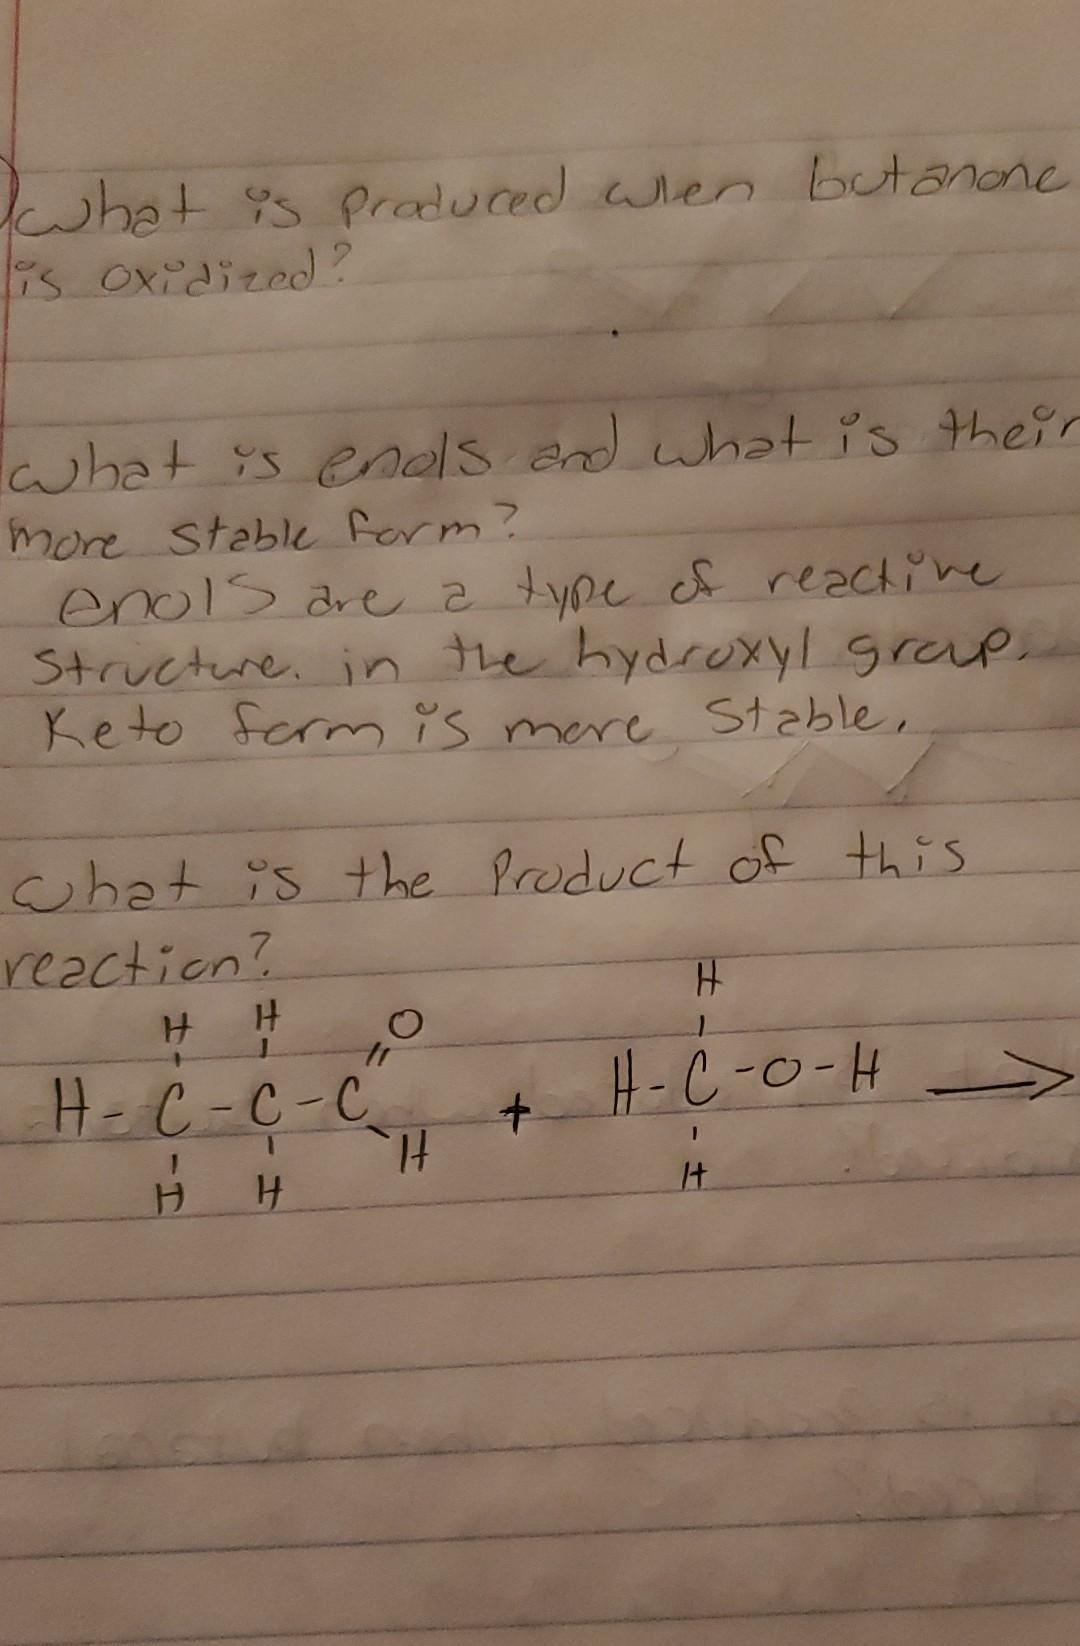 What is produced when butanone
is oxidized?
What is enols and what is their
more stable form?
enols are a type of reactive
structure. in the hydroxyl group.
Keto form is more stable.
What is the Product of this
reaction?
H
H H O
H-C-C-C + H-C-O-H →
H
H H H